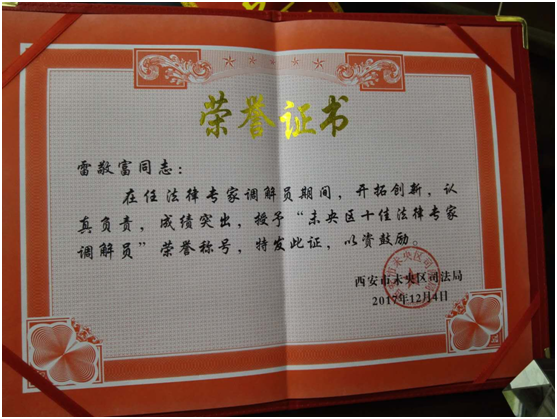 荣誉证书
雷敬富同志：
在任法律专家调解员期间，开拓创新，认
真负责，成绩突出，授予“未央区十佳法律专家
调解员”荣誉称号，特发此证，以资鼓励。
西安市未央区司法局
2017年12月4日